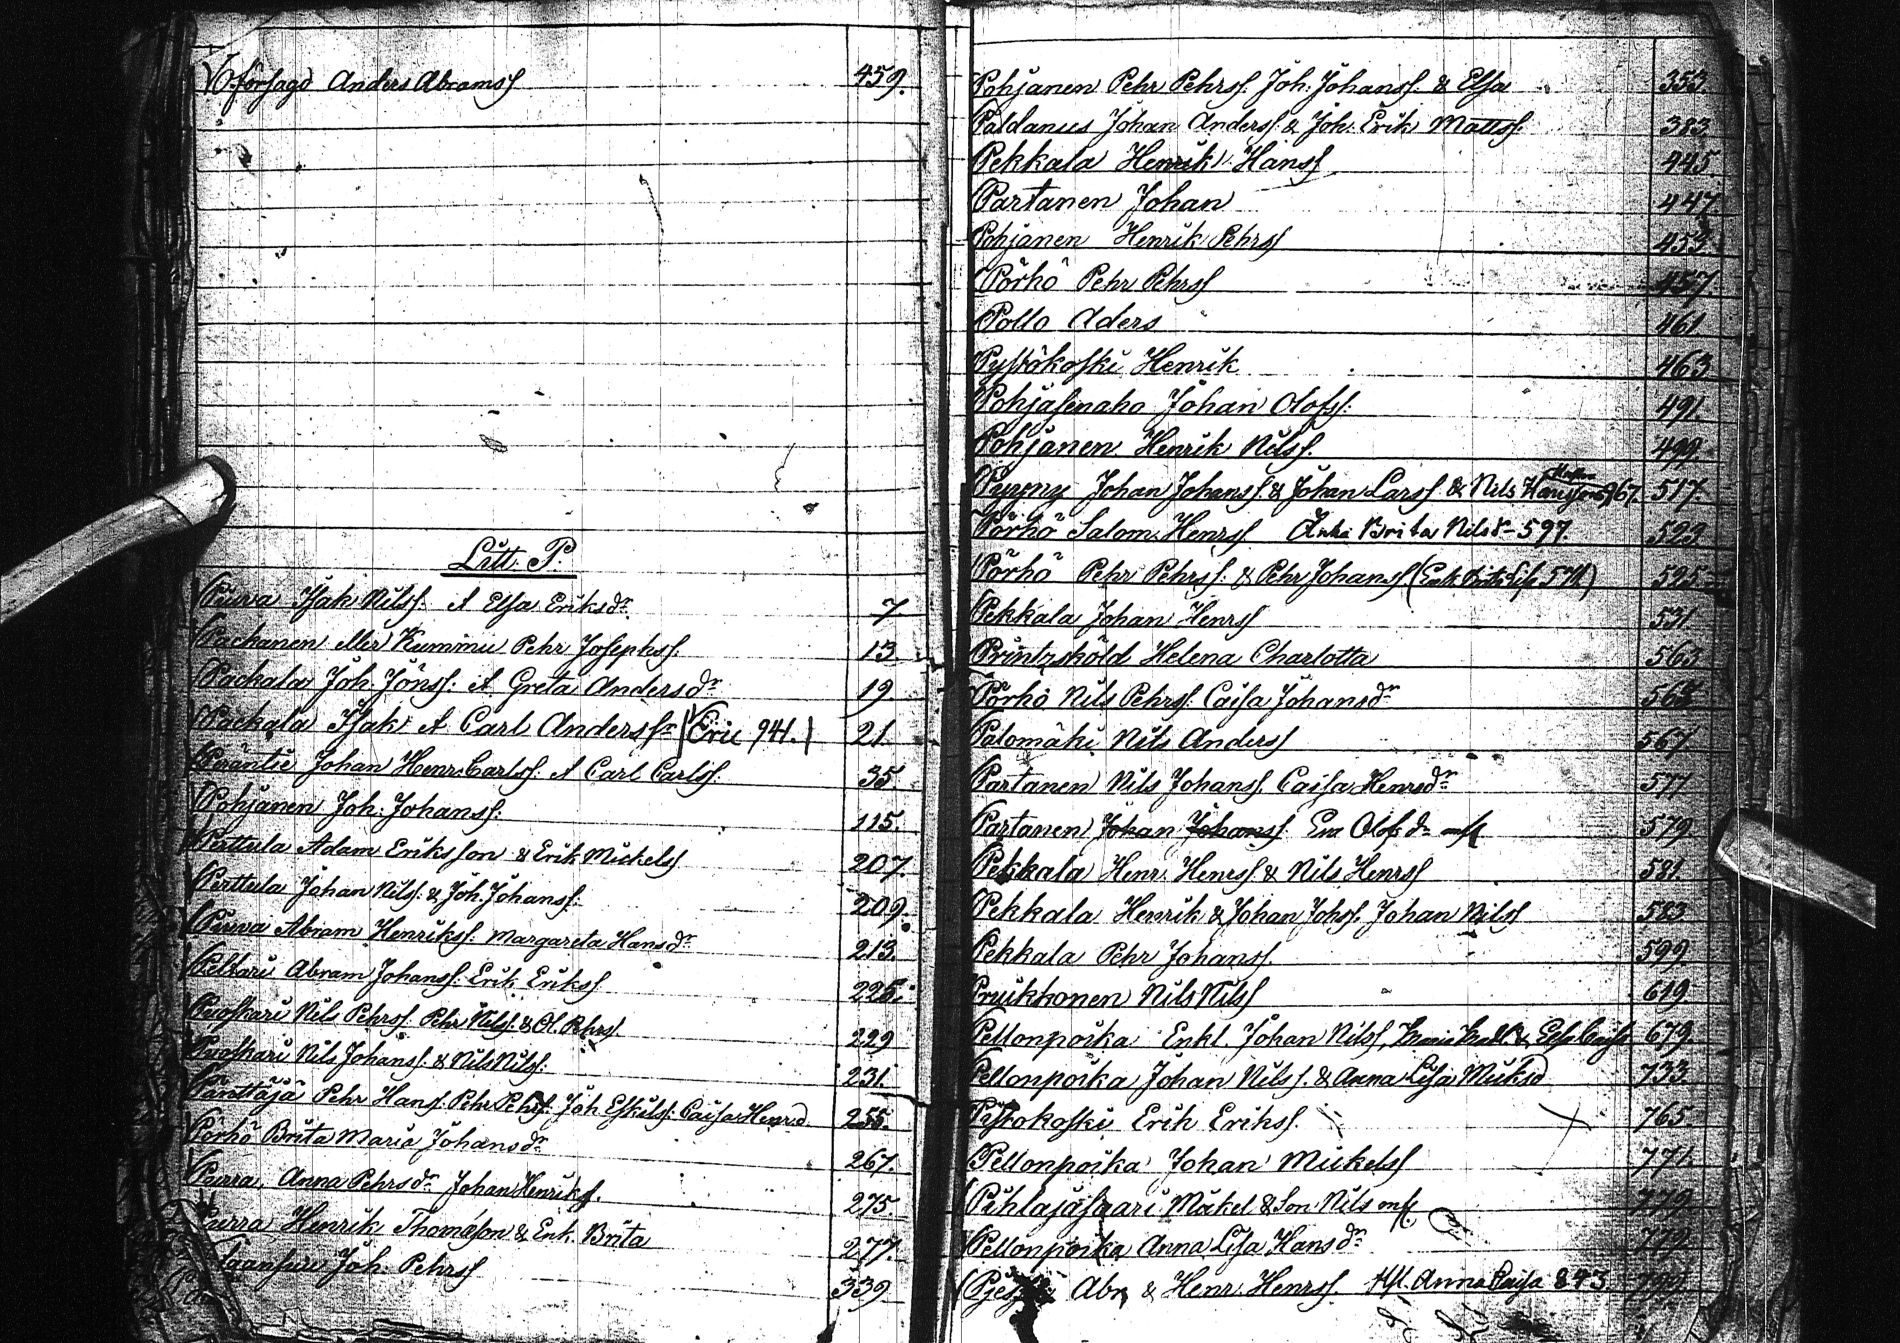 Öförsagd Anders Abramss 459.
Litt. P.
Purra Isak Nilss: & Elsa Eriksdr 7
Packanen eller Kummu Pehr Josephss. 13
Packala Joh. Jönss: & Greta Andersdr 19
Packala Isak & Carl Anderss (Eric 941.) 21.
Johan Henr. Carlss: & Carl Carlss: 35.
Pohjanen Joh. Johanss: 115.
Perttula Adam Eriksson & Erik Mickelss 207.
Perttula Johan Nilss: & Joh. Johanss: 209.
Abram Henrikss: Margareta Hansdr 213.
Peltari Abram Johanss: Erik Erikss
Puoskari Nils Pehrss: Pehr Nilss: & Ol. Pehrss. 229
Puoskari Nils Johanss: & Nils Nilss: 231.
Pänttäjä Pehr Hans. Pehr Pehrss: Joh. Eskilss: Caisa Henrd. 255.
Pörhö Brita Maria Johansdr 267.
Purra Anna Pehrsdr Johan Henrikss. 275.
Purra Henrik Thomasson & Enk. Brita 277.
Joh. Pehrss 339
Pohjanen Pehr Pehrss. Joh. Johanss. & Elsa 353.
Paldanus Johan Anderss. & Joh. Erik Matss. 383.
Pekkala Henrik Hanss 445.
Partanen Johan 447
Pohjanen Henrik Pehrss 453.
Pörhö Pehr Pehrss 457
Pollo Aders 461
Pystökoski Henrik 463
Pohjasenaho Johan Olofss: 491.
Pohjanen Henrik Nilss. 499.
Pyyny Johan Johanss. & Johan Larss. & Nils Hansson 967. 517.
Pörhö Salom. Henrss Brita Nilsdr 597. 523
Pörhö Pehr Pehrss: & Pehr Johanss 525
Pekkala Johan Henrss 531
Printzsköld Helena Charlotta 563
Pörhö Nils Pehrss: Caisa Johansdr
Palomäki Nils Anderss 567.
Partanen Nils Johanss. Caisa Henrsdr 577
Partanen Johan Johanss. Eva Olofsdr 579
Pekkala Henr. Henrss. & Nils Henrss 581.
Pekkala Henrik & Johan Johss. Johan Nilss 583
Pekkala Pehr Johanss. 599.
Pruikkonen Nils Nilss 619.
Pellonpoika Enkl. Johan Nilss, & Caisa 679.
Pellonpoika Johan Nilss. & Anna Lisa Micksd 733.
Pistokoski Erik Erikss. 765.
Pellonpoika Johan Mickelss 771.
Pihlajasaari Mickel & Son Nils 779
Pellonpoika Anna Lisa Hansdr 779
Abr. & Henr. Henrss. Anna Caisa 843.